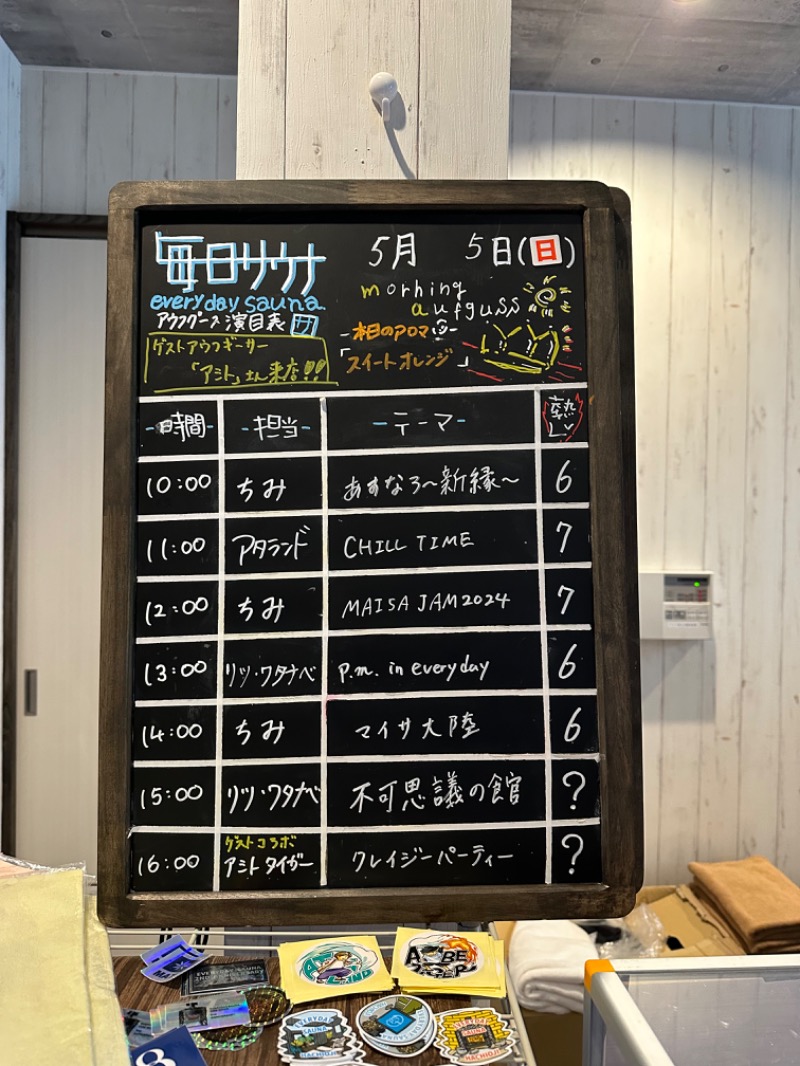 毎日サウナ
everyday sauna.
アウフグース演目表
ゲストアウフギーサー
「アシト」さん来店!!
5月 5日(日)
morning
aufguss
本日のアロマ
「スイートオレンジ」
時間 担当 テーマ 熱し
10:00 ちみ あすなろ〜新縁〜 6
11:00 アタランド CHILL TIME 7
12:00 ちみ MAISA JAM2024 7
13:00 リツ・ワタナベ p.m. in everyday 6
14:00 ちみ マイサ大陸 6
15:00 リツ・ワタナベ 不可思議の館 ?
16:00 ゲストコラボ アシトタイガー クレイジーパーティー ?
EVERYDAY
SAUNA
HACHIOJI
EVERYDAY
SAUNA
HACHIOJI